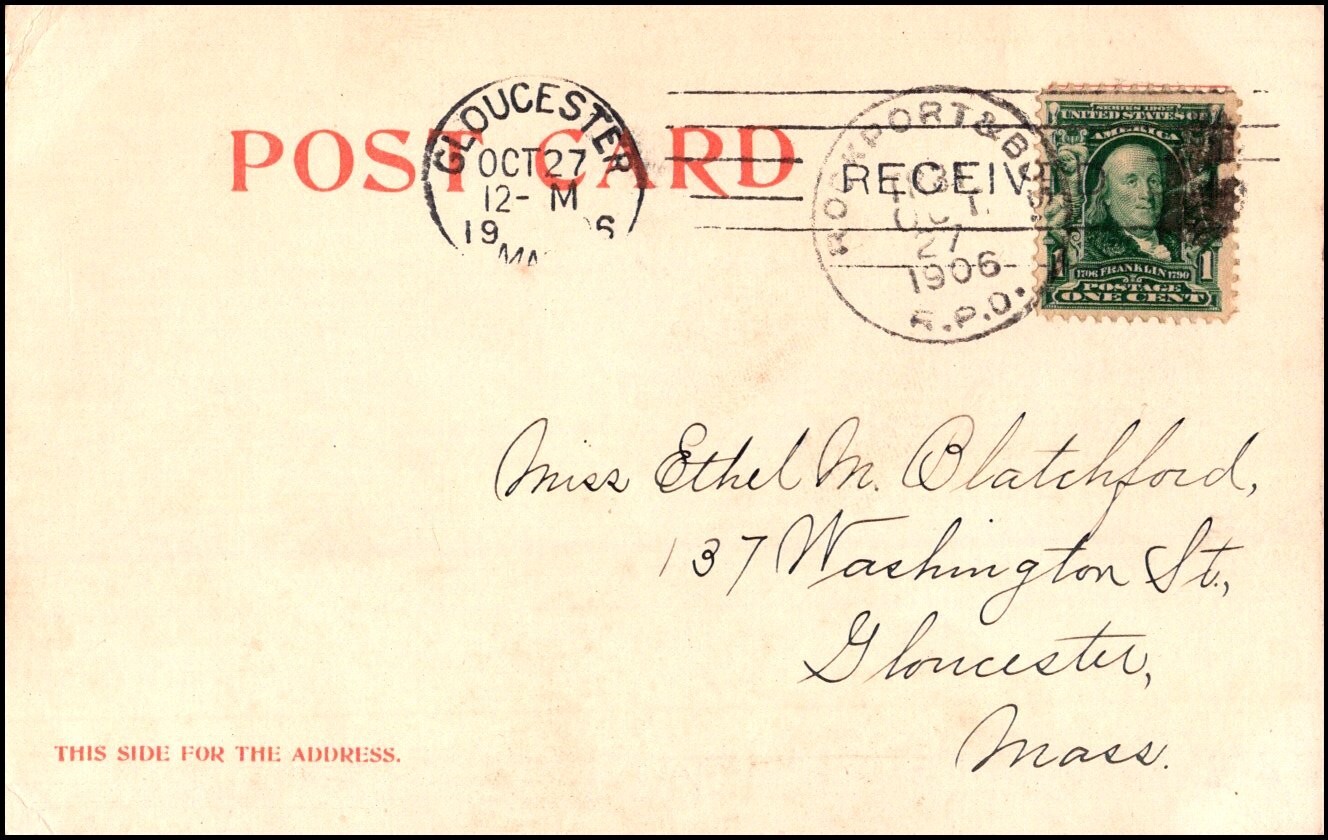 POST CARD
GLOUCESTER
OCT 27
12- M
19 6
RECEIV
ROCKPORT & BOS
OCT
27
1906
R.P.O.
SERIES 1902
UNITED STATES OF
AMERICA
1706 FRANKLIN 1790
1 1
POSTAGE
ONE CENT
Miss Ethel M. Blatchford,
137 Washington St.,
Gloucester,
Mass.
THIS SIDE FOR THE ADDRESS.